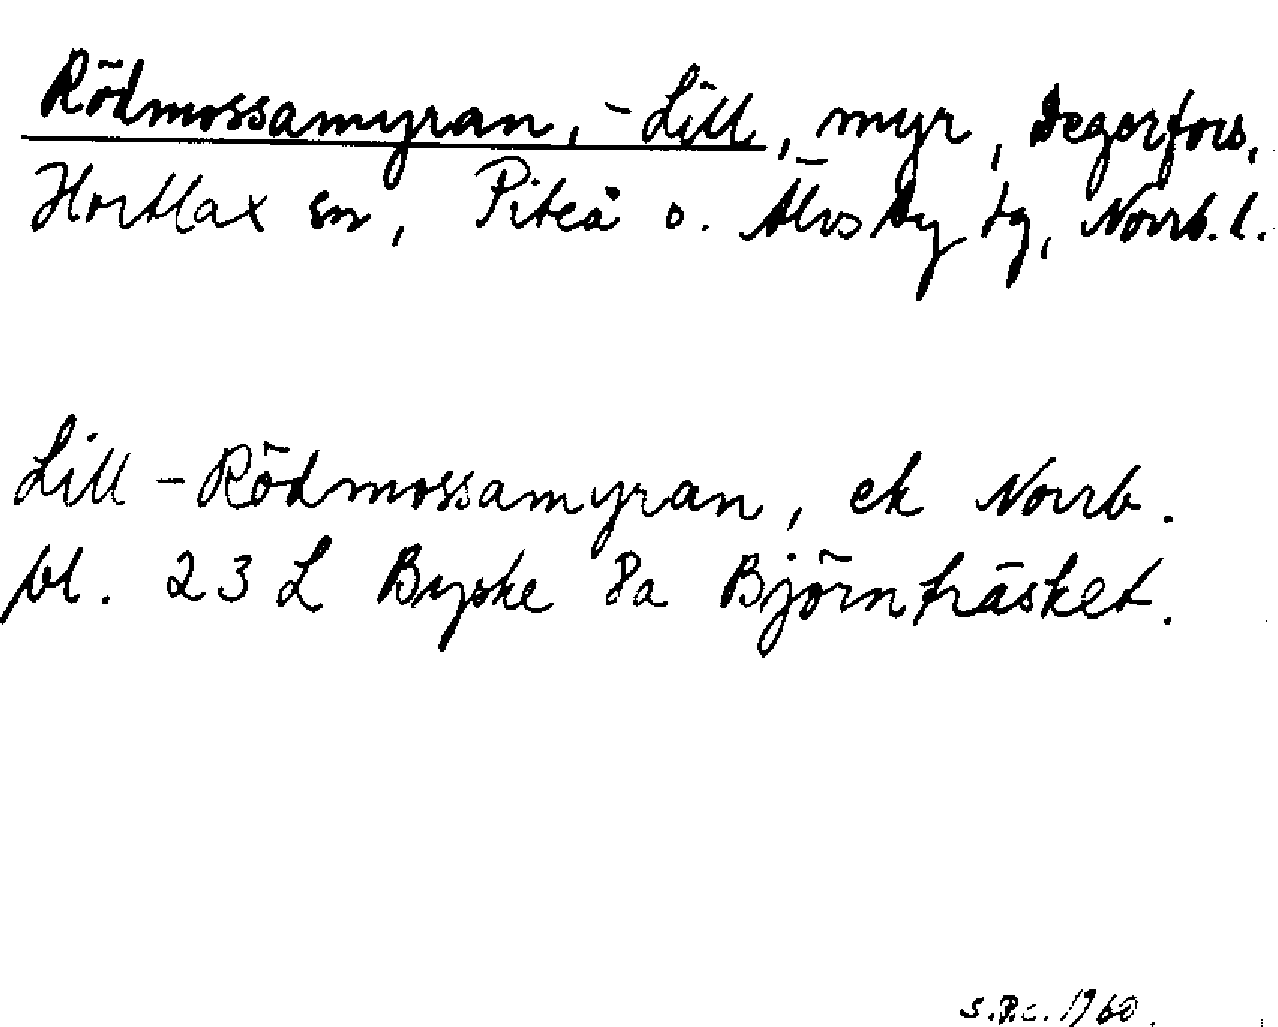 Rödmossamyran, -Lill, myr, Degerfors,
Hortlax sn, Piteå o. Älvsby tg, Norrb. l.
Lill-Rödmossamyran, ek Norrb.
bl. 23 L Byske 8a Björnträsket.
1960.